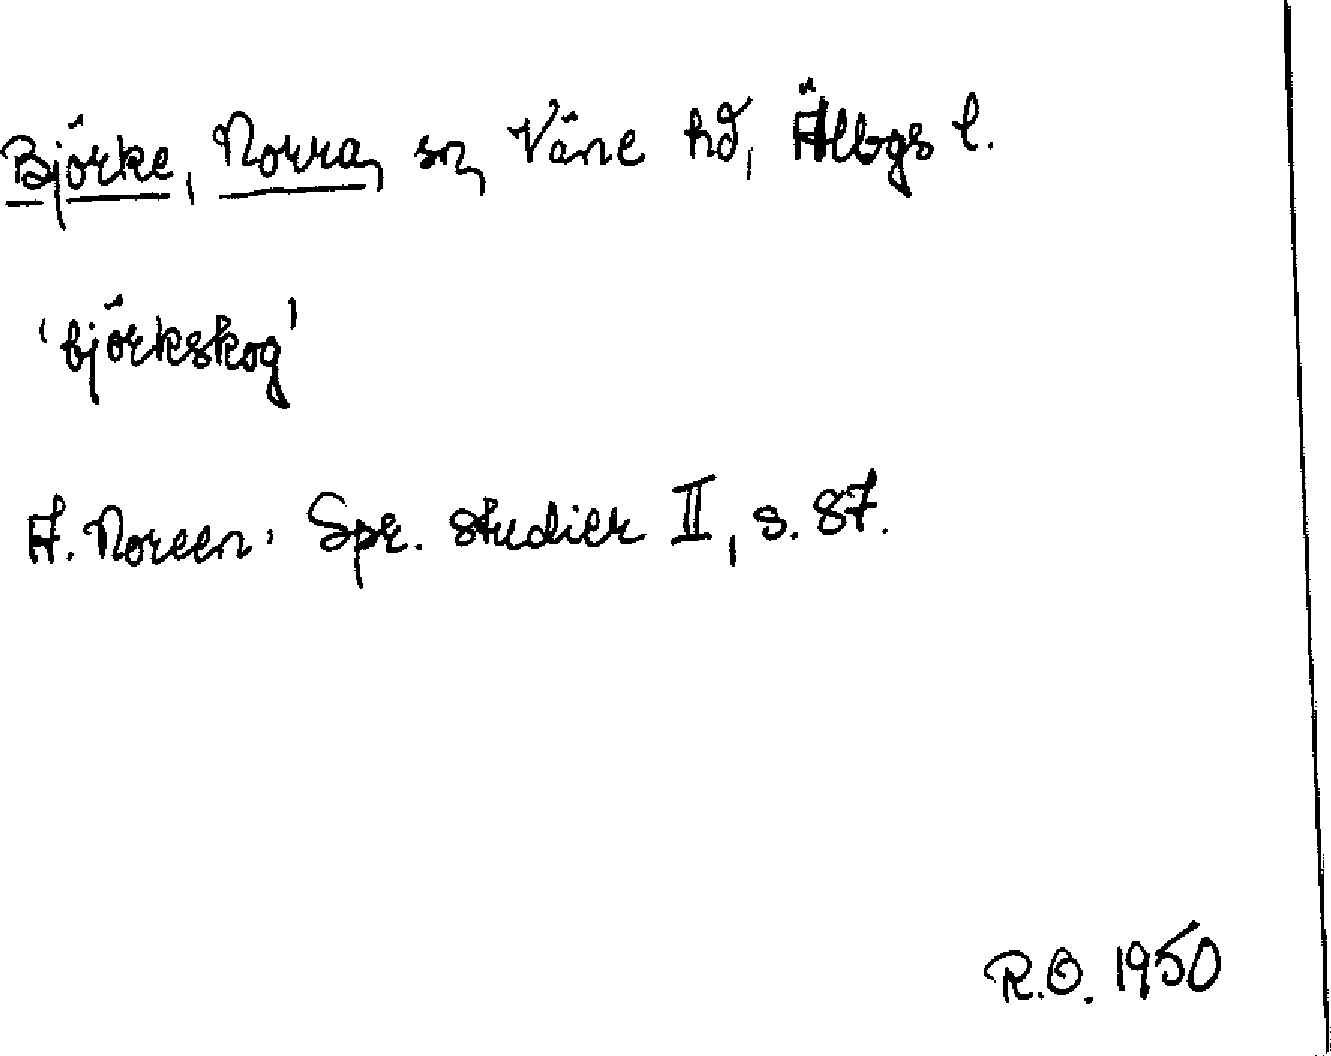 Björke, Norra, sn, Väne hd, Älbgs l.
'björkskog'
A. Noreen: Spr. studier II, s. 87.
R.O. 1950